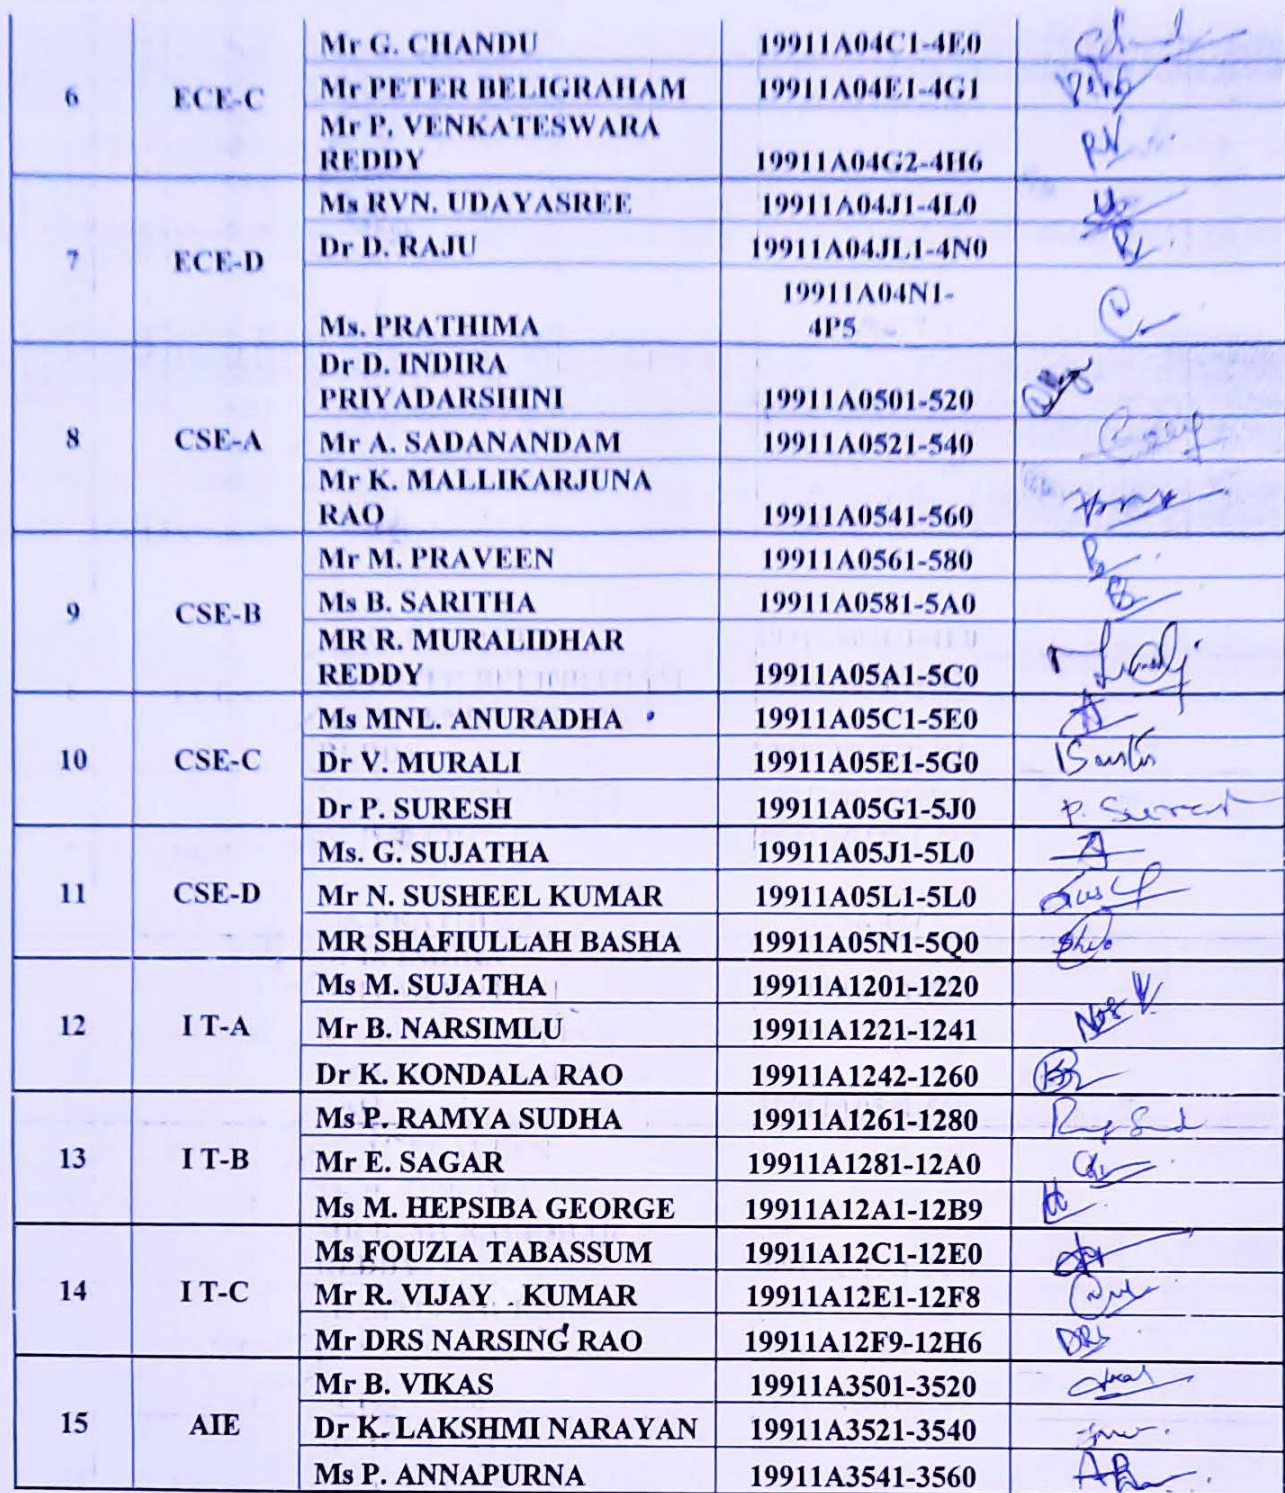 Mr G. CHANDU 19911A04C1-4E0
6 ECE-C Mr PETER BELIGRAHAM 19911A04E1-4G1
Mr P. VENKATESWARA
REDDY 19911A04G2-4H6
Ms RVN. UDAYASREE 19911A04J1-4L0
7 ECE-D Dr D. RAJU 19911A04JL1-4N0
19911A04N1-
Ms. PRATHIMA 4P5
Dr D. INDIRA
PRIYADARSHINI 19911A0501-520
8 CSE-A Mr A. SADANANDAM 19911A0521-540
Mr K. MALLIKARJUNA
RAO 19911A0541-560
Mr M. PRAVEEN 19911A0561-580
9 CSE-B Ms B. SARITHA 19911A0581-5A0
MR R. MURALIDHAR
REDDY 19911A05A1-5C0
Ms MNL. ANURADHA 19911A05C1-5E0
10 CSE-C Dr V. MURALI 19911A05E1-5G0
Dr P. SURESH 19911A05G1-5J0 P. Suresh
Ms. G. SUJATHA 19911A05J1-5L0
11 CSE-D Mr N. SUSHEEL KUMAR 19911A05L1-5L0
MR SHAFIULLAH BASHA 19911A05N1-5Q0
Ms M. SUJATHA 19911A1201-1220
12 I T-A Mr B. NARSIMLU 19911A1221-1241
Dr K. KONDALA RAO 19911A1242-1260
Ms P. RAMYA SUDHA 19911A1261-1280
13 I T-B Mr E. SAGAR 19911A1281-12A0
Ms M. HEPSIBA GEORGE 19911A12A1-12B9
Ms FOUZIA TABASSUM 19911A12C1-12E0
14 I T-C Mr R. VIJAY . KUMAR 19911A12E1-12F8
Mr DRS NARSING RAO 19911A12F9-12H6 DRS
Mr B. VIKAS 19911A3501-3520
15 AIE Dr K. LAKSHMI NARAYAN 19911A3521-3540
Ms P. ANNAPURNA 19911A3541-3560